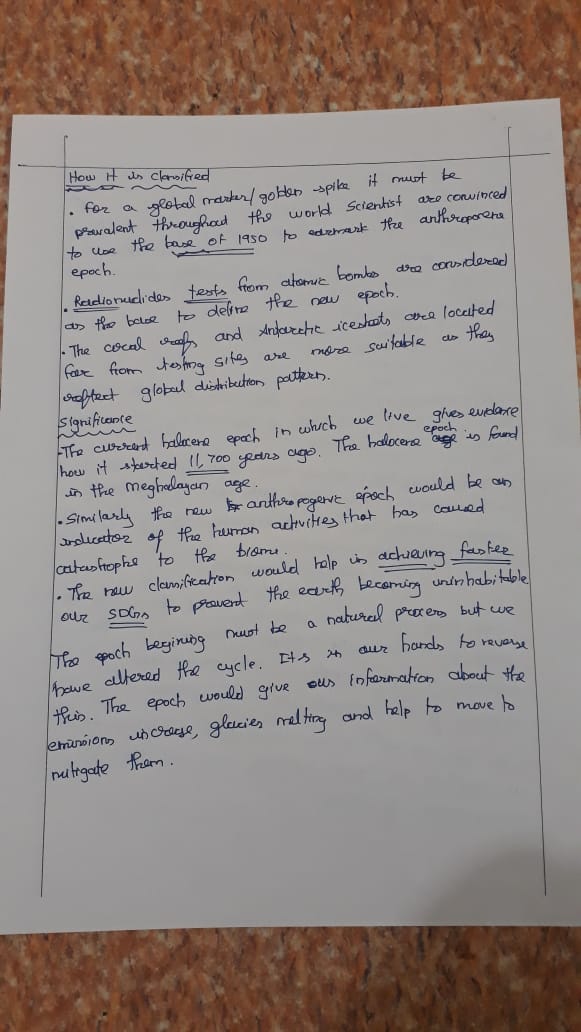 How it is classified
• For a global marker/golden spike it must be
prevalent throughout the world Scientist are convinced
to use the base of 1950 to edemark the anthropocene
epoch.
• Radionuclides tests from atomic bombs are considered
as the base to define the new epoch.
• The coral reefs and Antarctic icesheets are located
far from testing sites are more suitable as they
reflect global distribution pattern.
Significance
- The current holocene epoch in which we live gives evidence
how it started 11,700 years ago. The holocene epoch is found
in the meghalayan age.
• Similarly the new anthropogenic epoch would be an
indicator of the human activities that has caused
catastrophe to the biome.
• The new classification would help in achieving faster
our SDGs to prevent the earth becoming uninhabitable
The epoch begining must be a natural process but we
have altered the cycle. Its in our hands to reverse
this. The epoch would give us information about the
emissions increase, glacies melting and help to move to
mitigate them.